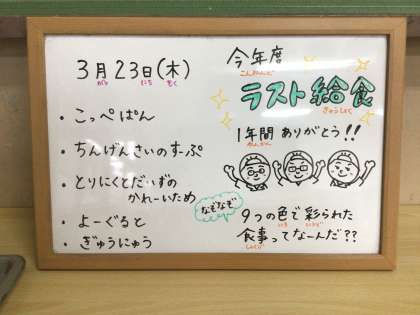 3月23日(木)
がつ にち もく
・こっぺぱん
・ちんげんさいのすーぷ
・とりにくとだいずの
かれーいため
・よーぐると
・ぎゅうにゅう
今年度
こんねんど
ラスト給食
きゅうしょく
1年間ありがとう!!
ねんかん
なぞなぞ
9つの色で彩られた
いろ いろど
食事ってなーんだ??
しょくじ